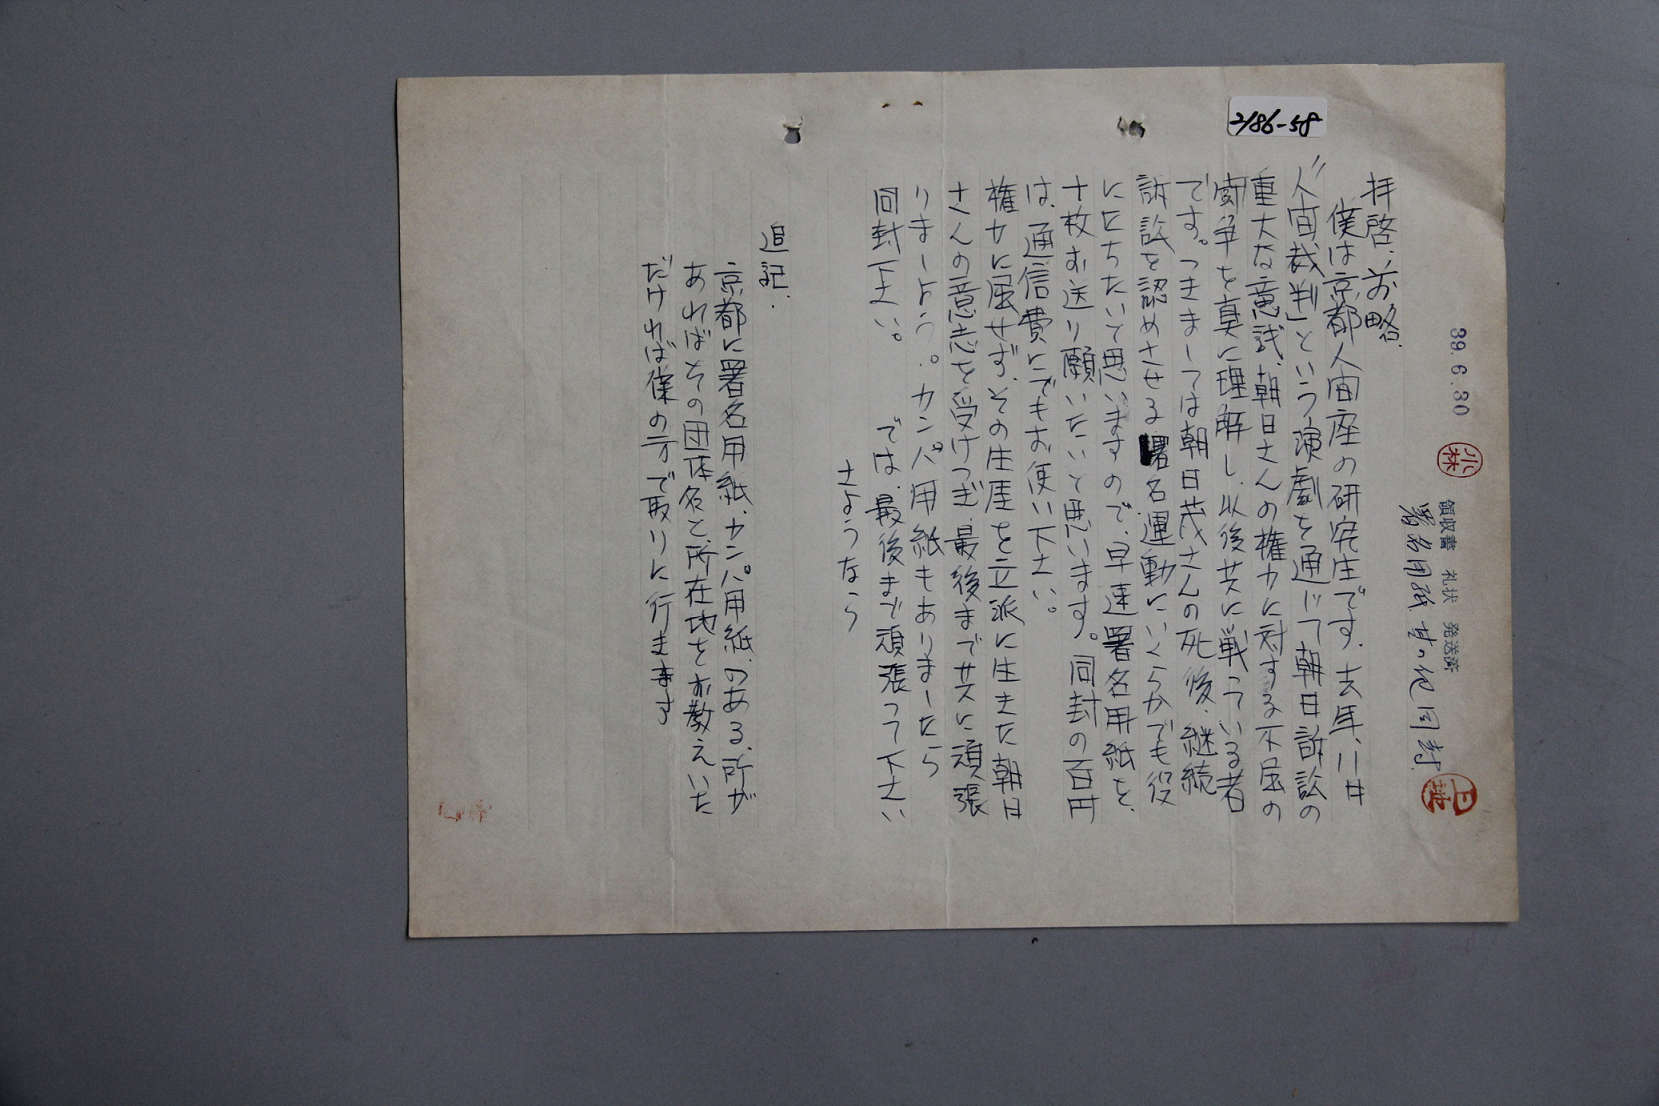 2186-58
39.6.30
小林
領収書 礼状 発送済
署名用紙その他同封
拝啓、前略
僕は京都人間座の研究生です。去年、八井
"人間裁判」という演劇を通じて朝日訴訟の
重大な意試、朝日さんの権力に対する不屈の
闘争を真に理解し、以後共に戦っている者
です。つきましては朝日茂さんの死後、継続
訴訟を認めさせる署名運動にいくらかでも役
にたちたいと思いますので、早速署名用紙を、
十枚お送り願いたいと思います。同封の百円
は、通信費にでもお使い下さい。
権力に屈せず、その生涯を立派に生きた朝日
さんの意志を受けつぎ、最後まで共に頑張
りましょう。カンパ用紙もありましたら
同封下さい。
では、最後まで頑張って下さい
さようなら
追記.
京都に署名用紙、カンパ用紙のある所が
あればその団体名と所在地をお教えいた
だければ僕の方で取りに行きます